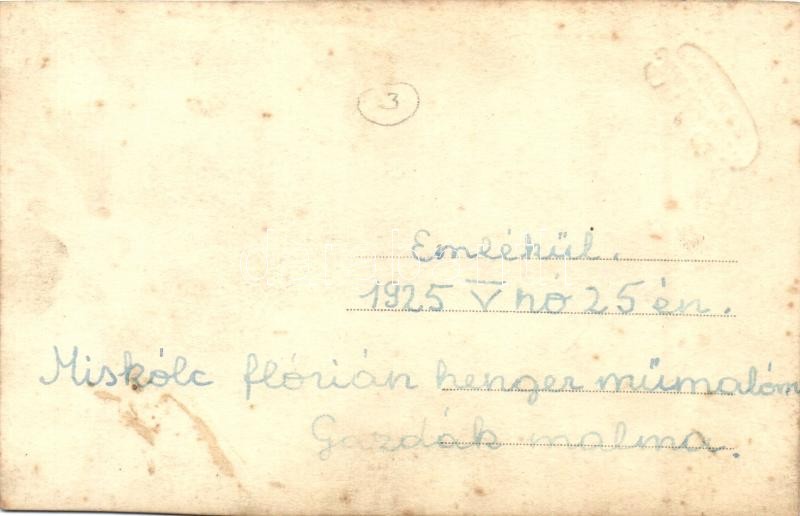 3
Emlékül.
1925 V hó 25 én.
Miskólc flórián henger műmalóm
Gazdák malma.